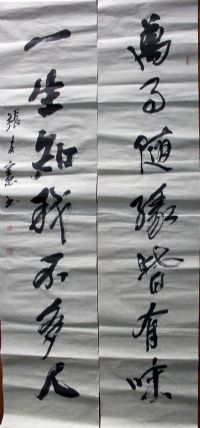 萬事隨緣皆有味
一生知我不多人
張友憲书